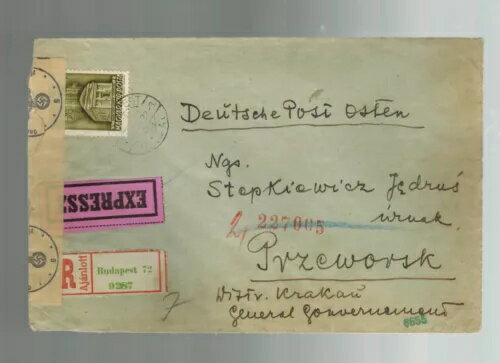 Deutsche Post Osten
Ngs.
Stepkiewicz Jędruś
227005
Przeworsk
Distr. Krakau
General Gouvernement
6655
EXPRESSZ
Ajánlott
R
Budapest 72
9287
7